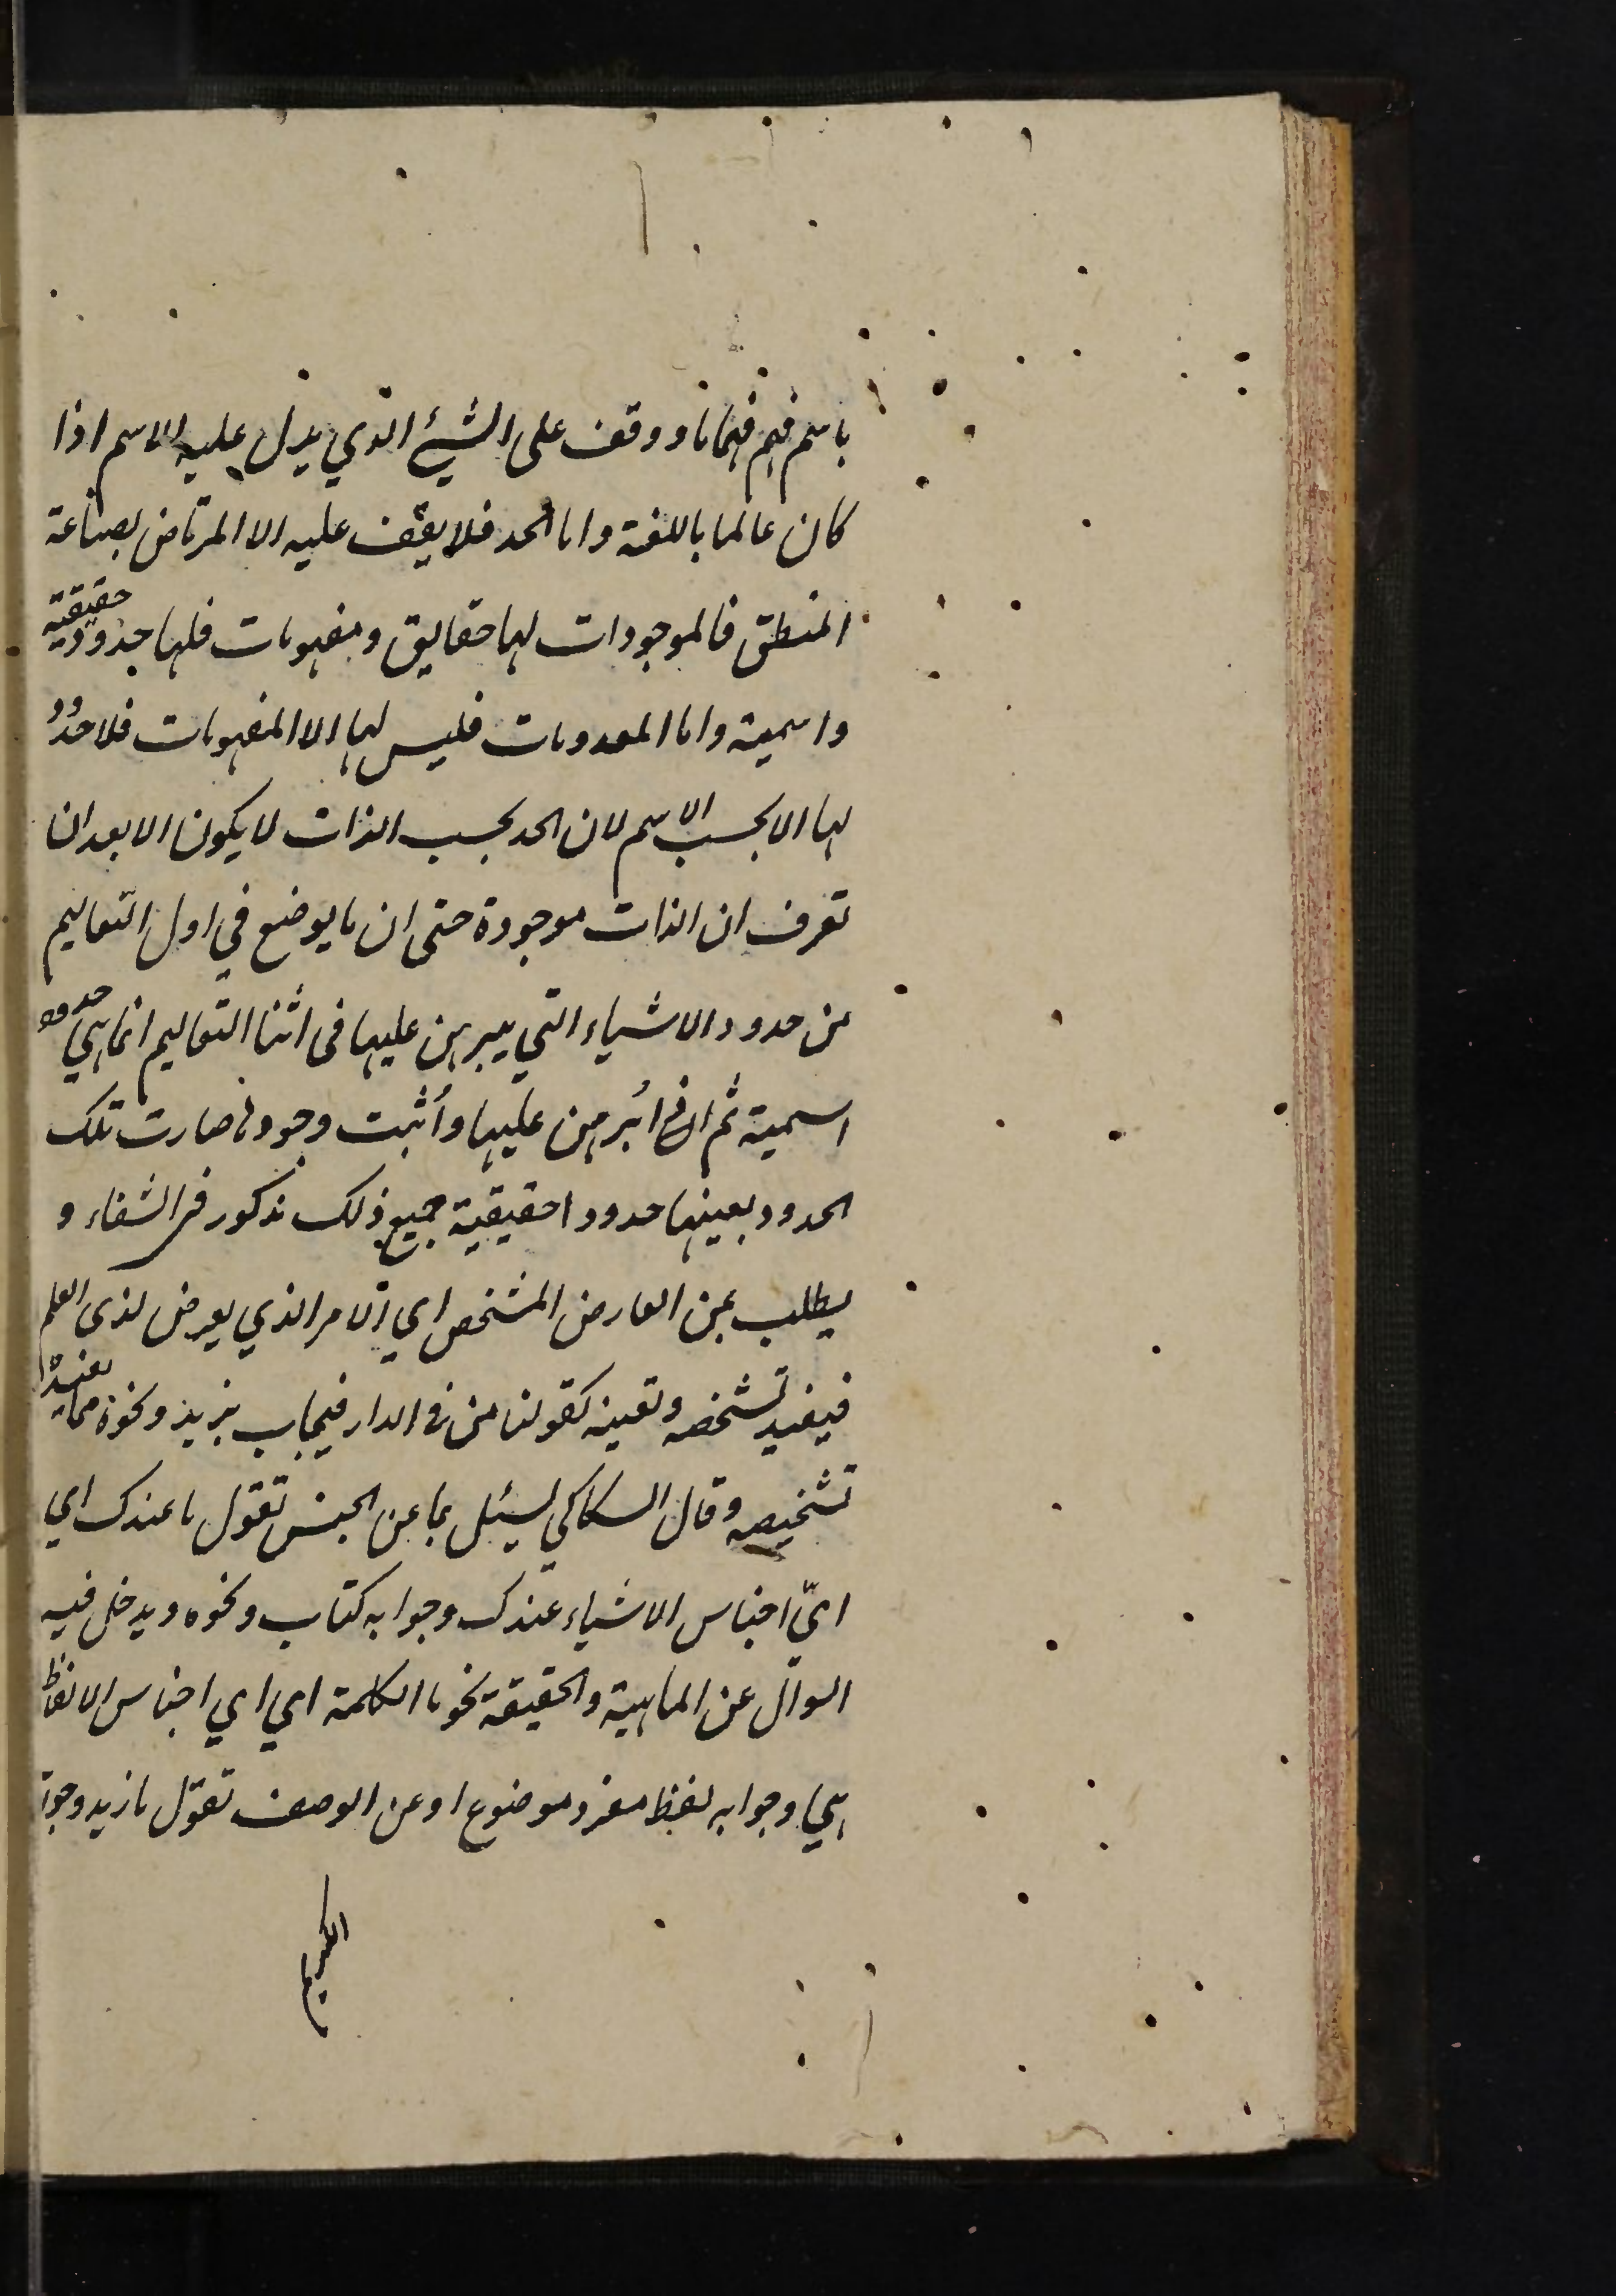 باسم فهم فهما ما ووقف على الشيء الذي يدل عليه الاسم اذا
كان عالما باللغة واما الحد فلا يقف عليه الا المرتاض بصناعة
المنطق فالموجودات لها حقايق ومفهومات فلها حدود حقيقية
واسمية واما المعدومات فليس لها الا المفهومات فلا حدود
لها الا بحسب الاسم لان الحد بحسب الذات لا يكون الا بعد ان
تعرف ان الذات موجودة حتى ان ما يوضع في اول التعاليم
من حدود الاشياء التي يبرهن عليها فى اثنا التعاليم انما هي حدود
اسمية ثم اذا ابرهن عليها واثبت وجودها صارت تلك
الحدود بعينها حدودا حقيقية جميع ذلك مذكور فى الشفاء و
يطلب بمن العارض المشخص اي الامر الذي يعرض لذى العلم
فيفيد تشخصه وتعينه كقولنا من فى الدار فيجاب بزيد ونحوه مما يفيد
تشخيصه وقال السكاكي يسئل بما عن الجنس تقول ما عندك اي
ايّ اجناس الاشياء عندك وجوابه كتاب ونحوه ويدخل فيه
السوال عن الماهية والحقيقة نحو ما الكلمة اي اي اجناس الالفاظ
هي وجوابه لفظ مفرد موضوع او عن الوصف تقول ما زيد وجوابه
الكريم